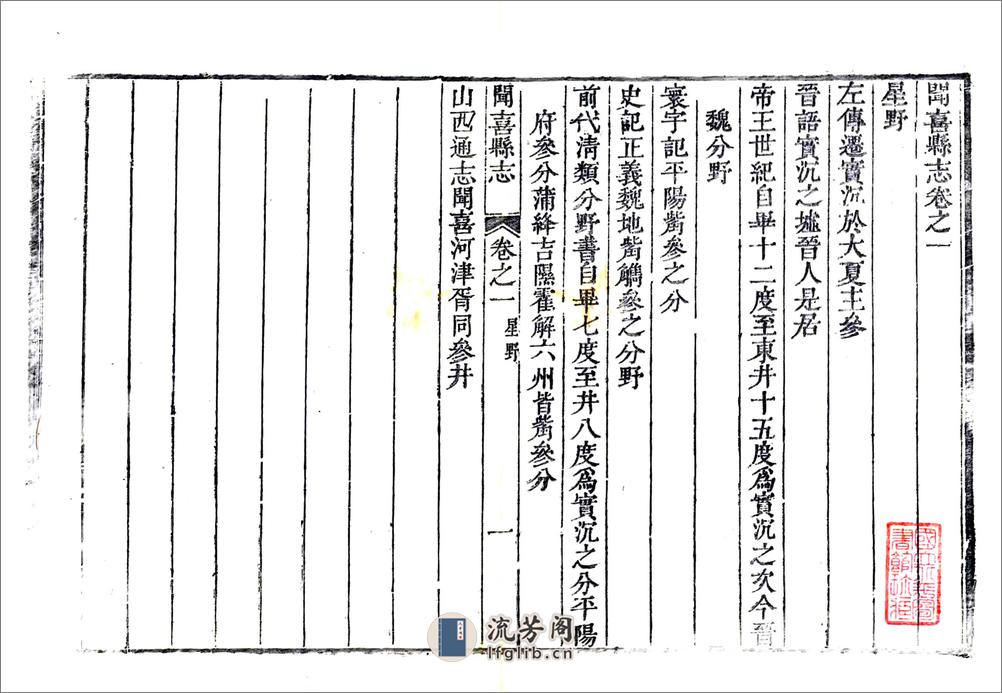 聞喜縣志卷之一
星野
左傳遷實沉於大夏主參
晉語實沉之墟晉人是居
帝王世紀自畢十二度至東井十五度爲實沉之次今晉
魏分野
寰宇記平陽觜參之分
史記正義魏地觜觿參之分野
前代清類分野書自畢七度至井八度爲實沉之分平陽
府參分蒲絳吉隰霍解六州皆觜參分
聞喜縣志 卷之一 星野 一
山西通志聞喜河津胥同參井
流芳阁
lfglib.cn